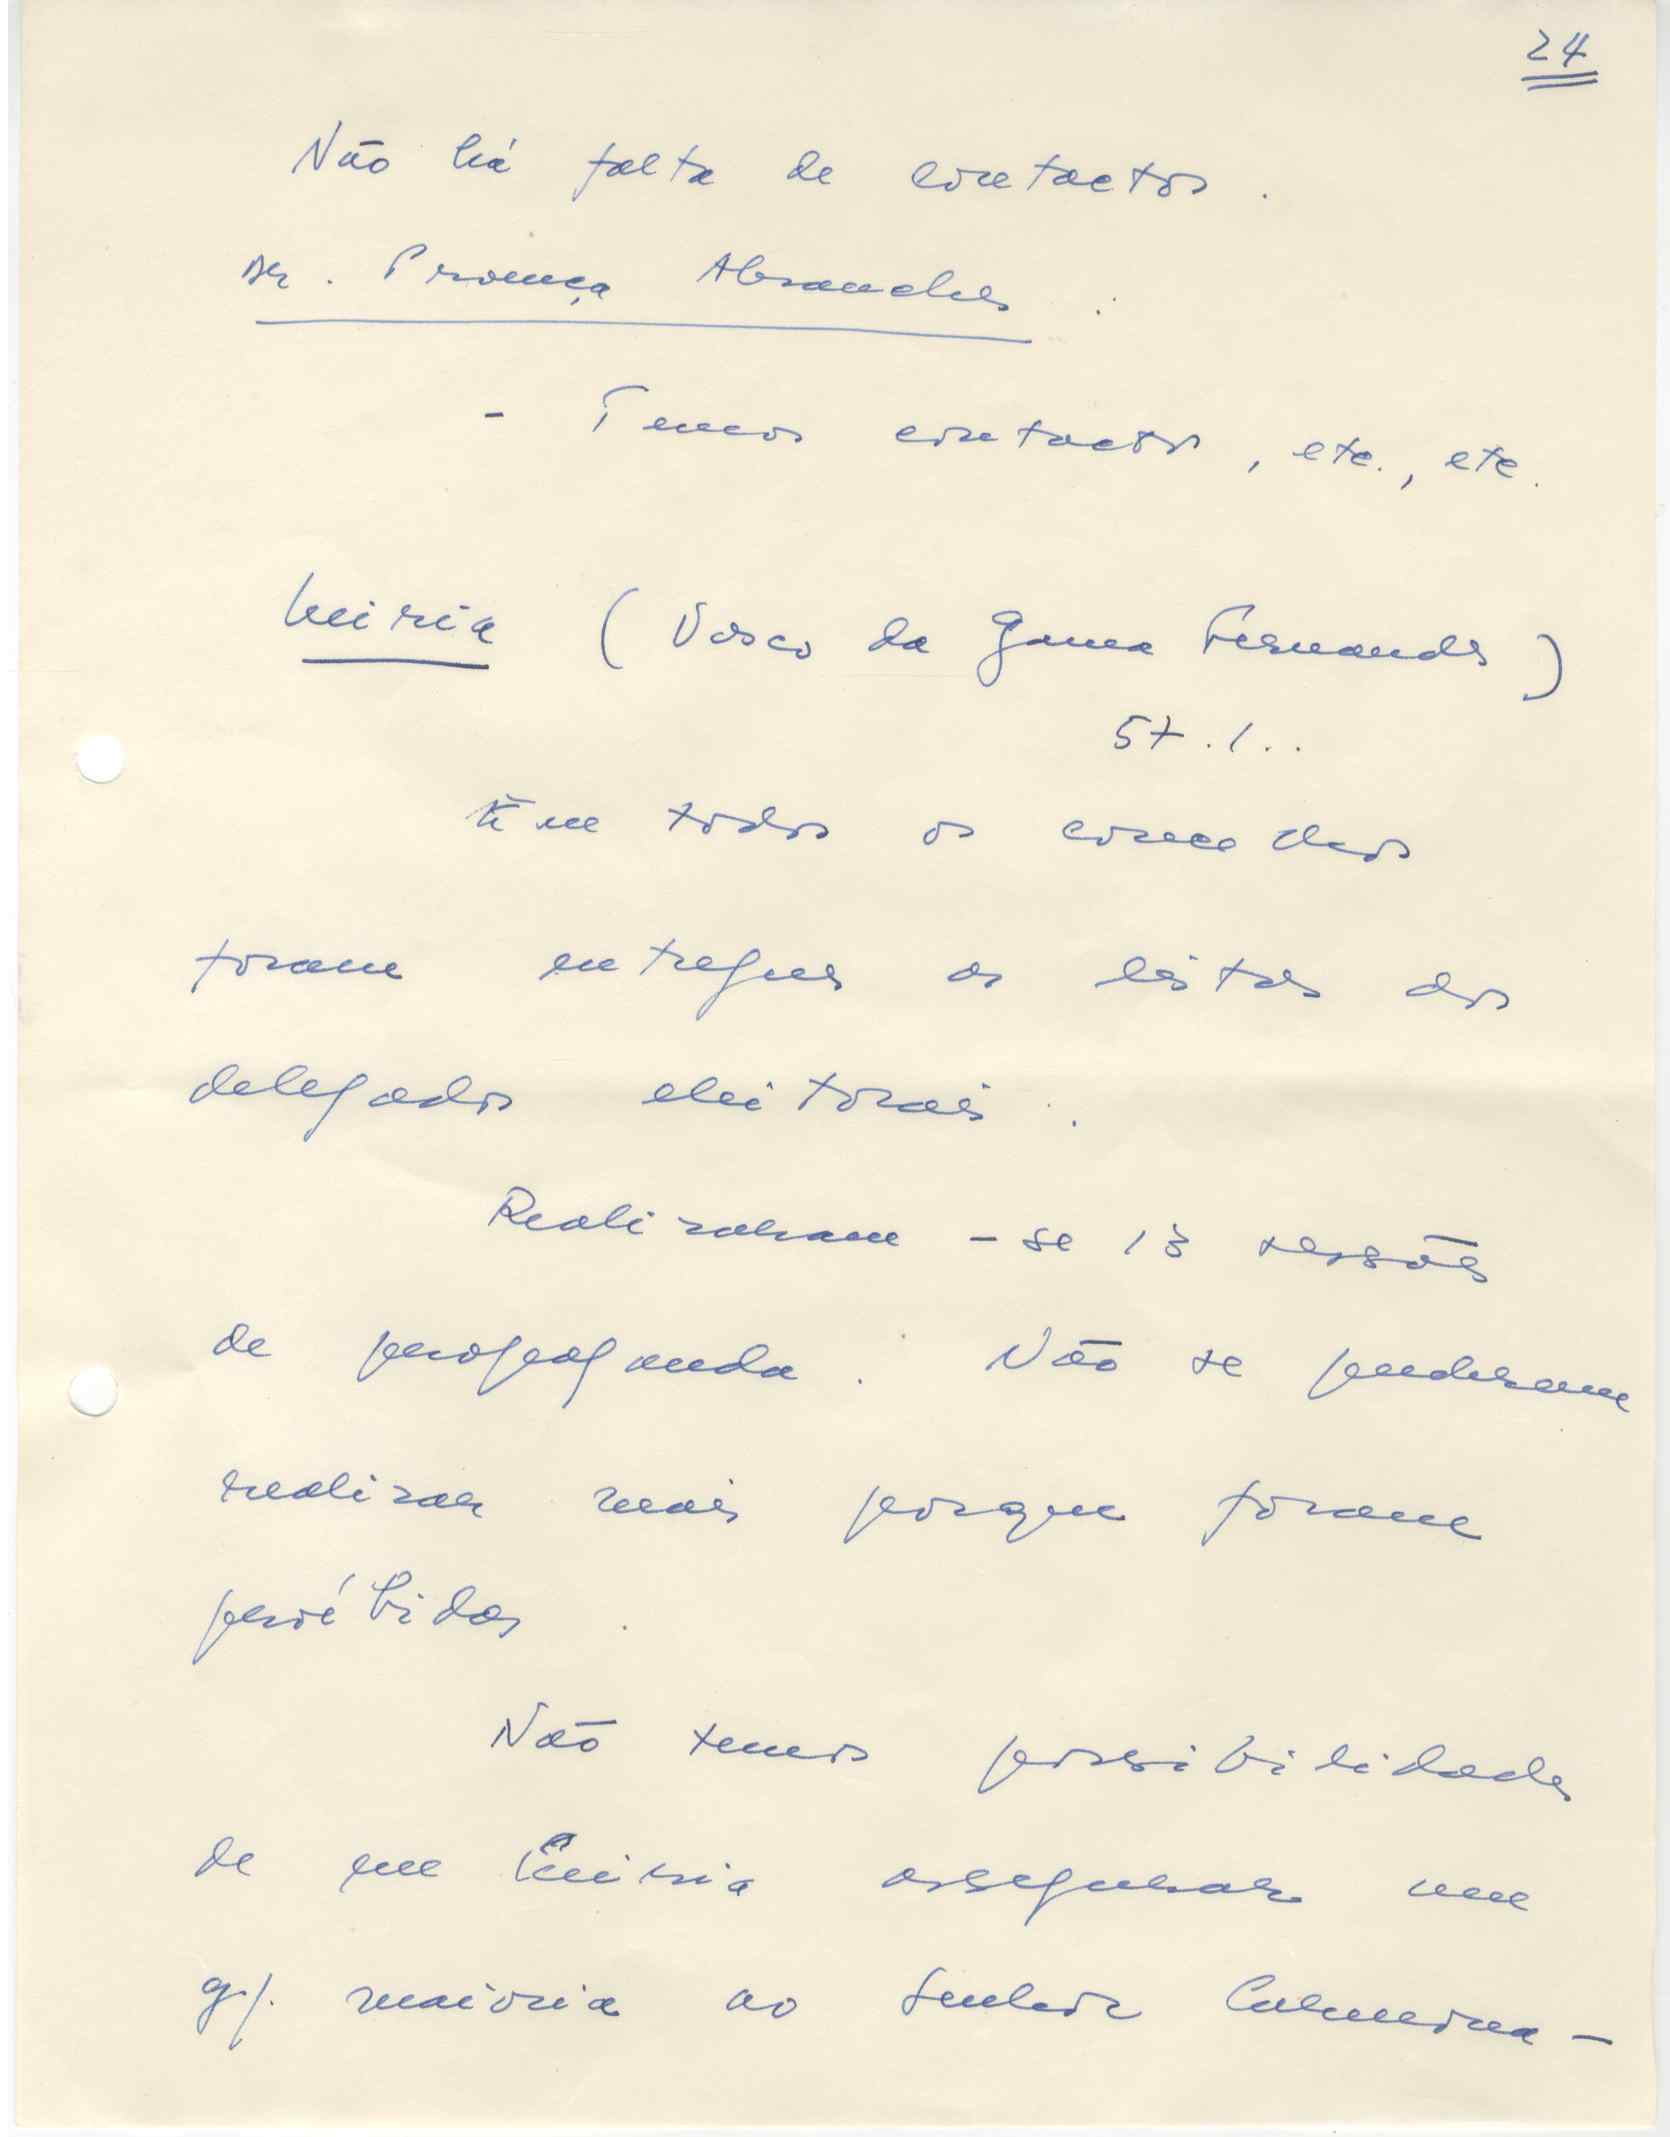 24
Não há falta de contactos.
Dr. Proença Abranches.
- Temos contactos, etc., etc.
Leiria (Vasco da Gama Fernandes)
Em todos os concelhos
foram entregues as listas dos
delegados eleitorais.
Realizaram-se 13 sessões
de propaganda. Não se puderam
realizar mais porque foram
proíbidas.
Não temos possibilidades
de em Leiria assegurar uma
g/. maioria ao Senhor